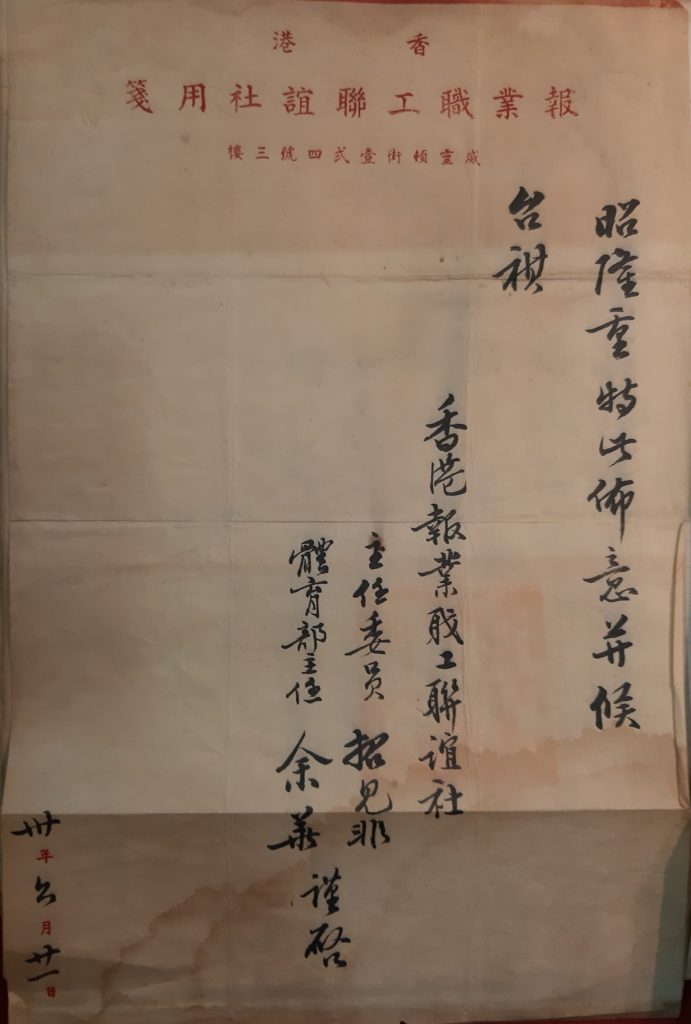 香港
報業職工聯誼社用箋
威靈頓街壹弍四號三樓
昭隆重特此佈意并候
台祺
香港報業职工聯誼社
主任委员 招見非
體育部主任 余華 謹啓
卅年六月廿一日